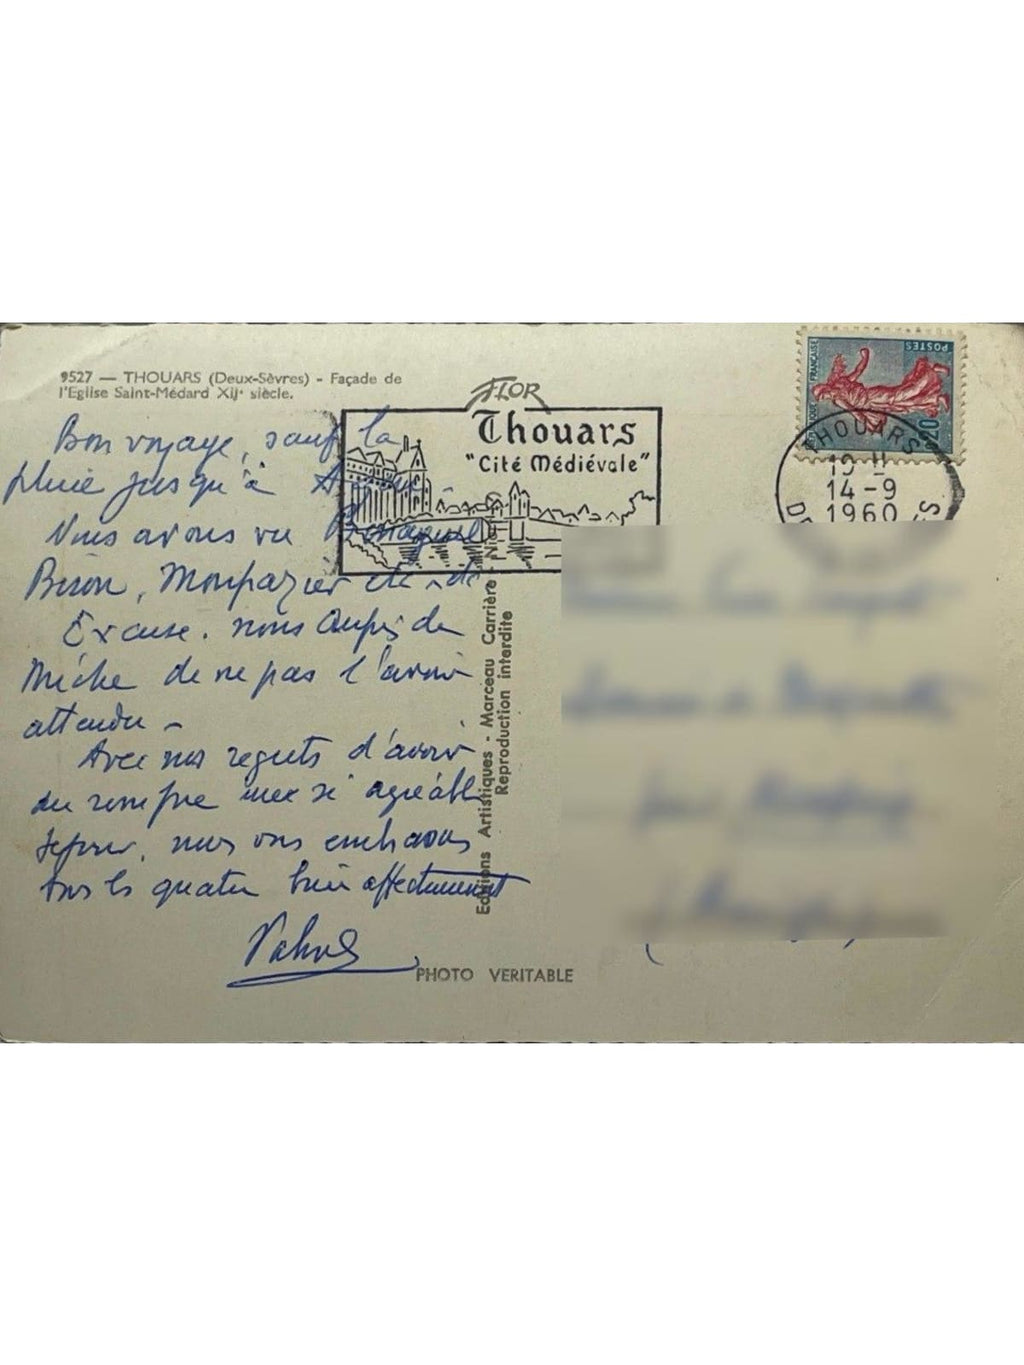 9527 — THOUARS (Deux-Sèvres) - Façade de
l'Eglise Saint-Médard XIIe siècle.
Bon voyage, sauf la
pluie jusqu'à
Nous avons vu Bonaguil
Biron, Monpazier etc
Excuse. nous auprès de
Miche de ne pas l'avoir
attendu -
Avec nos regrets d'avoir
du rompre un si agréable
séjour, nous vous embrassons
tous les quatre bien affectueusement
FLOR
Thouars
"Cité Médiévale"
POSTES
FRANÇAISE
0,20
THOUARS
14-9
1960
Editions Artistiques - Marceau Carrière -
Reproduction interdite
PHOTO VERITABLE